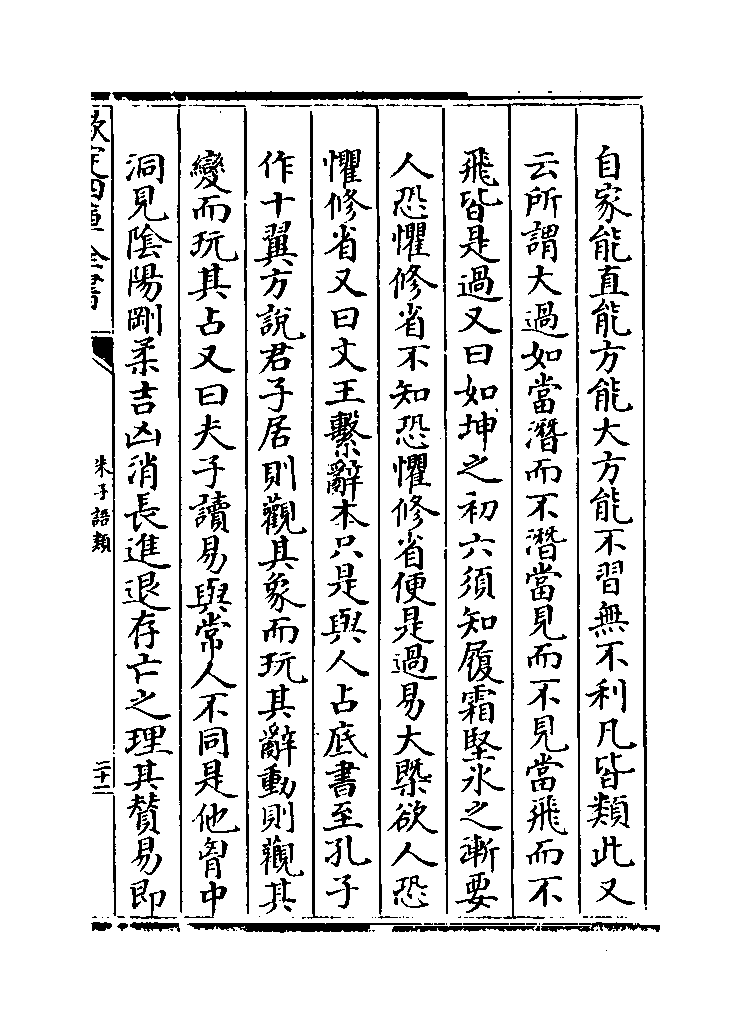 自家能直能方能大方能不習無不利凡皆類此又
云所謂大過如當潛而不潛當見而不見當飛而不
飛皆是過又曰如坤之初六須知履霜堅氷之漸要
人恐懼修省不知恐懼修省便是過易大槩欲人恐
懼修省又曰文王繫辭本只是與人占底書至孔子
作十翼方說君子居則觀其象而玩其辭動則觀其
變而玩其占又曰夫子讀易與常人不同是他胷中
洞見陰陽剛柔吉凶消長進退存亡之理其贊易即
欽定四庫全書
朱子語類
二十二